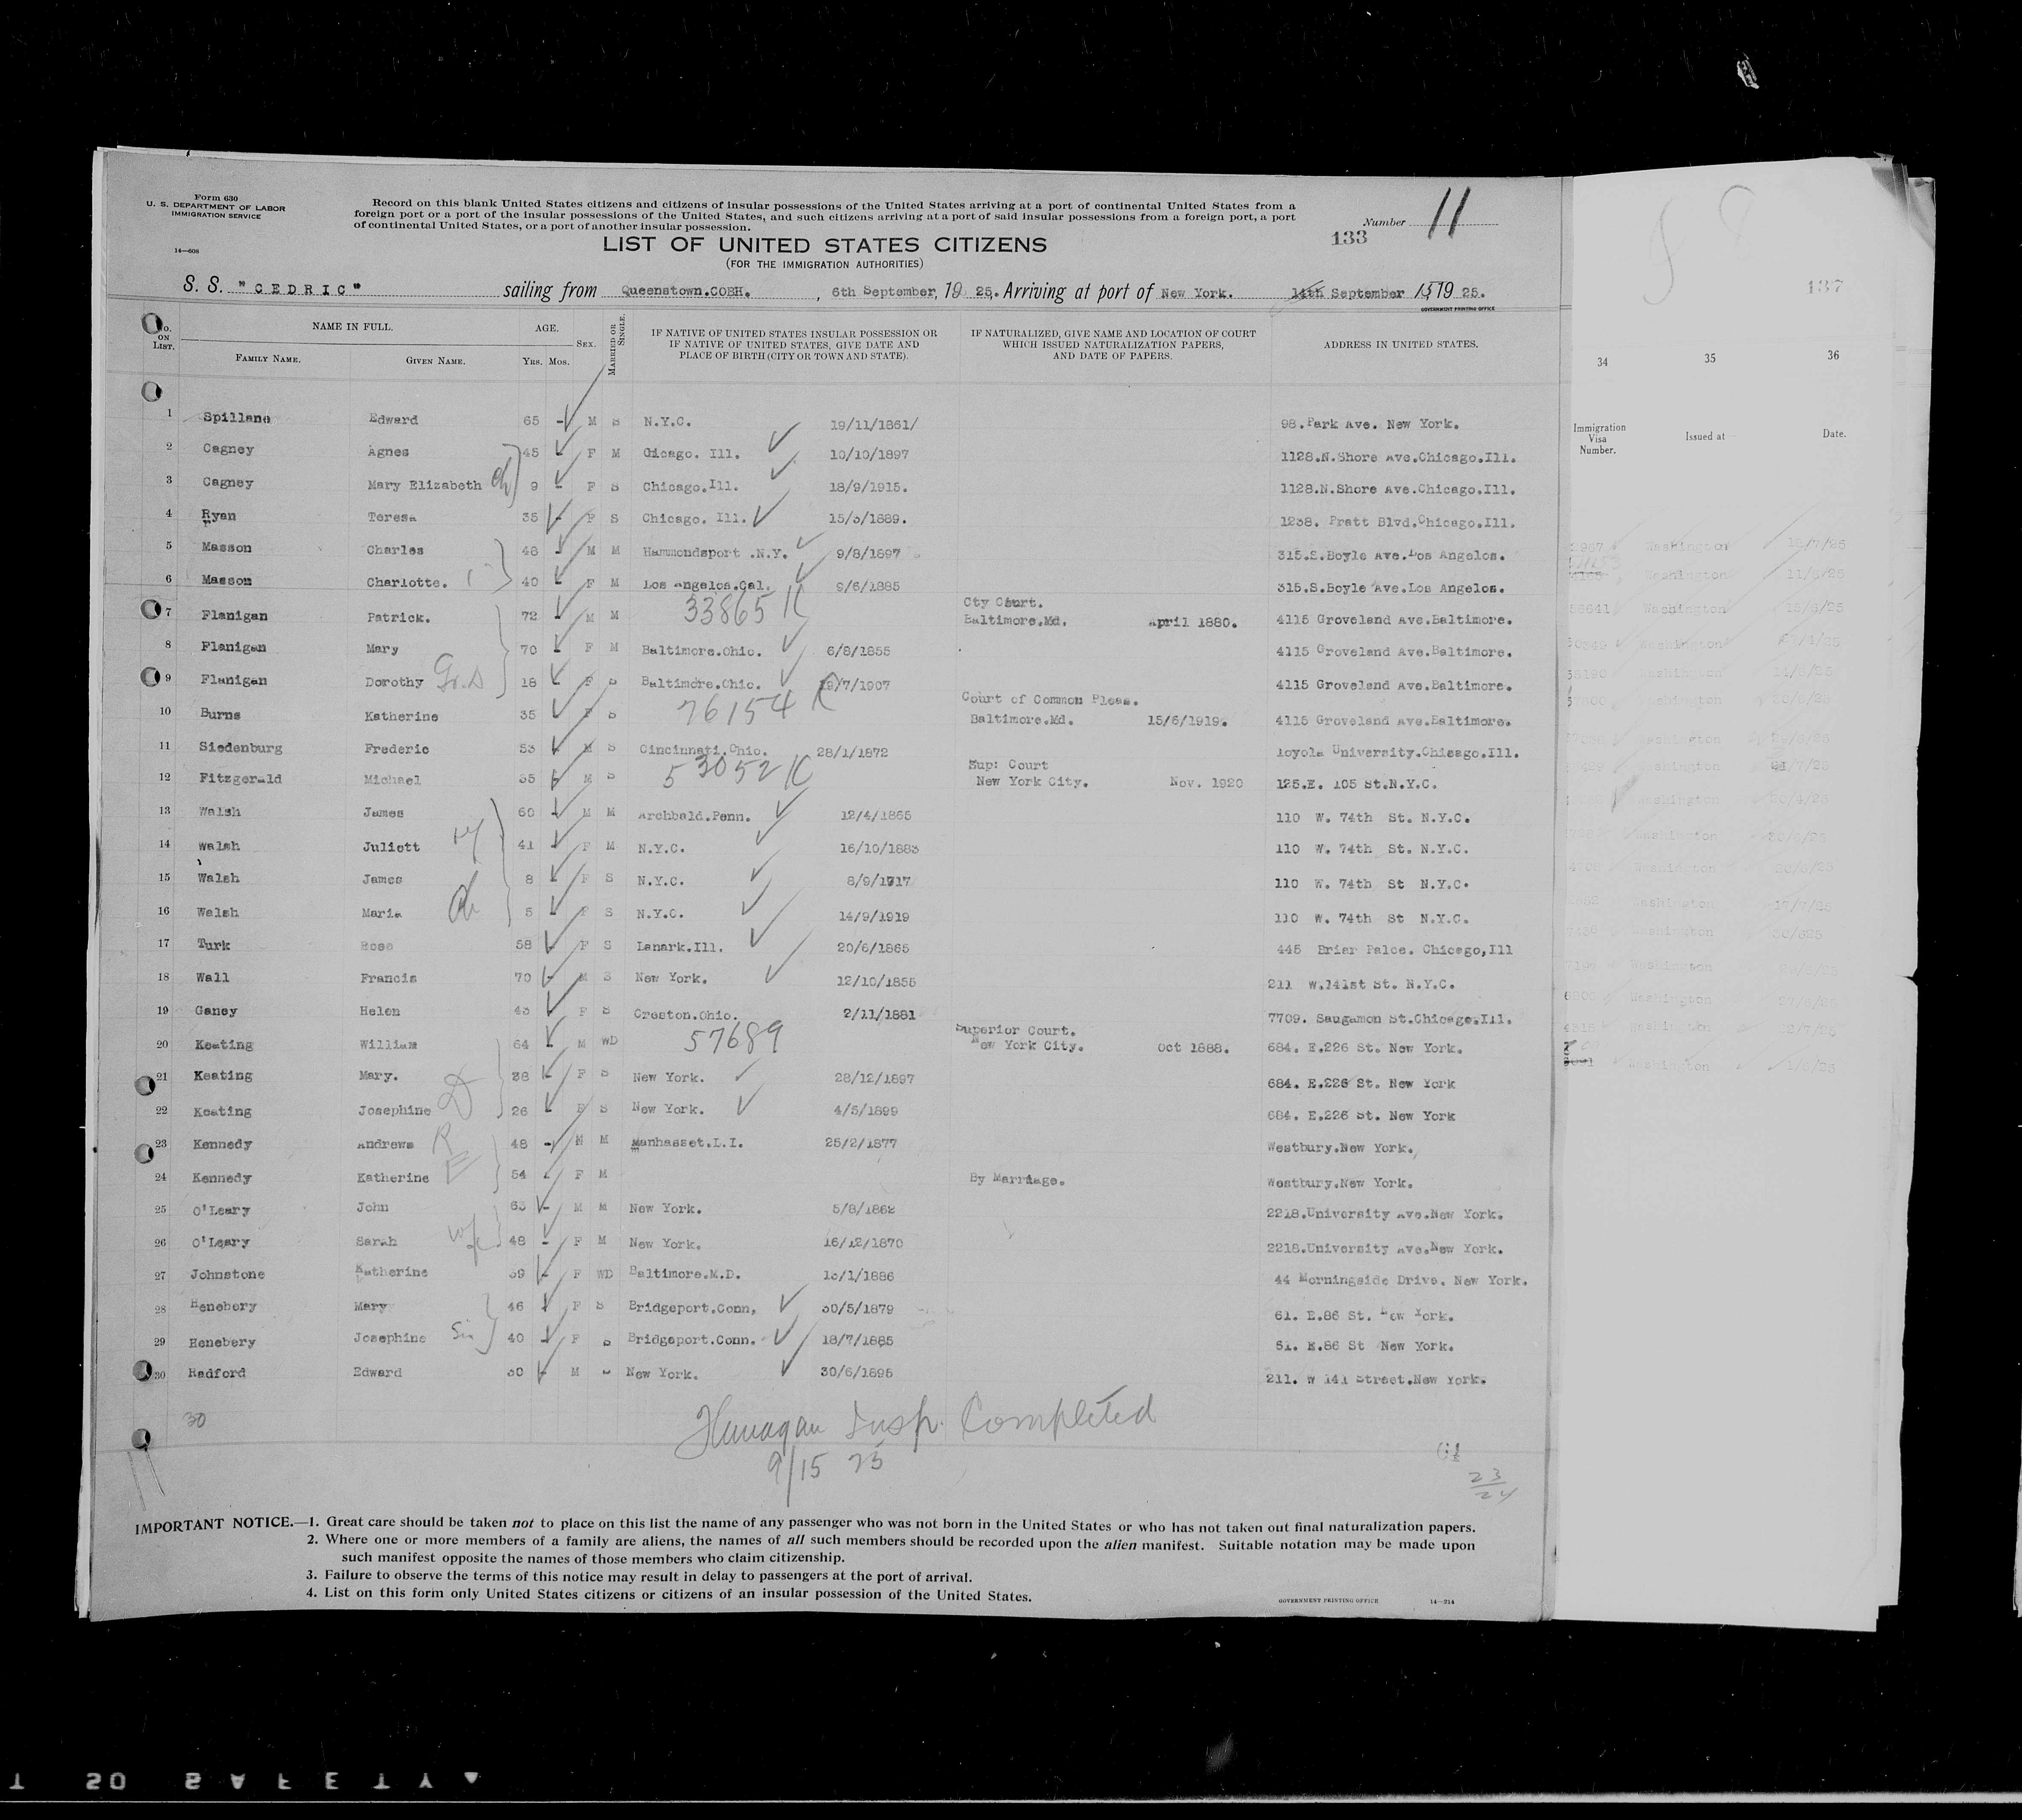 Form 630
U. S. DEPARTMENT OF LABOR
IMMIGRATION SERVICE
14—608
Record on this blank United States citizens and citizens of insular possessions of the United States arriving at a port of continental United States from a
foreign port or a port of the insular possessions of the United States, and such citizens arriving at a port of said insular possessions from a foreign port, a port
of continental United States, or a port of another insular possession.
Number 11
133
LIST OF UNITED STATES CITIZENS
(FOR THE IMMIGRATION AUTHORITIES)
S. S. "CEDRIC" sailing from Queenstown.COBH. , 6th September, 19 25. Arriving at port of New York. 14th September 15 19 25.
GOVERNMENT PRINTING OFFICE
137
No. ON LIST. NAME IN FULL. AGE. SEX. MARRIED OR SINGLE. IF NATIVE OF UNITED STATES INSULAR POSSESSION OR IF NATIVE OF UNITED STATES, GIVE DATE AND PLACE OF BIRTH (CITY OR TOWN AND STATE). IF NATURALIZED, GIVE NAME AND LOCATION OF COURT WHICH ISSUED NATURALIZATION PAPERS, AND DATE OF PAPERS. ADDRESS IN UNITED STATES.
FAMILY NAME. GIVEN NAME. Yrs. Mos.
34 35 36
Immigration Visa Number. Issued at Date.
1 Spillane Edward 65 - M S N.Y.C. 19/11/1861/ 98.Park Ave. New York.
2 Cagney Agnes 45 F M Gicago. Ill. 10/10/1897 1128.N.Shore Ave.Chicago.Ill.
3 Cagney Mary Elizabeth ch 9 - F S Chicago.Ill. 18/9/1915. 1128.N.Shore Ave.Chicago.Ill.
4 Ryan Teresa 35 - F S Chicago. Ill. 15/3/1889. 1238. Pratt Blvd.Chicago.Ill.
5 Masson Charles 48 - M M Hammondsport .N.Y. 9/8/1897 315.S.Boyle Ave.Los Angelos.
6 Masson Charlotte. 40 F M Los Angelos.Cal. 9/6/1885 315.S.Boyle Ave.Los Angelos.
33865 K
Cty Court.
7 Flanigan Patrick. 72 - M M Baltimore.Md. April 1880. 4115 Groveland Ave.Baltimore.
8 Flanigan Mary 70 - F M Baltimore.Ohio. 6/8/1855 4115 Groveland Ave.Baltimore.
9 Flanigan Dorothy Gr.D 18 F S Baltimore.Ohio. 19/7/1907 4115 Groveland Ave.Baltimore.
76154 K
Court of Common Pleas.
10 Burns Katherine 35 F S Baltimore.Md. 15/6/1919. 4115 Groveland Ave.Baltimore.
11 Siedenburg Frederic 53 M S Cincinnati.Ohio. 28/1/1872 loyola University.Chicago.Ill.
53052 K
Sup: Court
12 Fitzgerald Michael 35 M S New York City. Nov. 1920 125.E. 105 St.N.Y.C.
13 Walsh James 60 M M Archbald.Penn. 12/4/1865 110 W. 74th St. N.Y.C.
14 Walsh Juliett 41 F M N.Y.C. 16/10/1883 110 W. 74th St. N.Y.C.
15 Walsh James 8 F S N.Y.C. 8/9/1917 110 W. 74th St N.Y.C.
16 Walsh Maria ch 5 F S N.Y.C. 14/9/1919 110 W. 74th St N.Y.C.
17 Turk Rose 58 F S Lanark.Ill. 20/6/1865 445 Briar Palce. Chicago,Ill
18 Wall Francis 70 M S New York. 12/10/1855 211 W.141st St. N.Y.C.
19 Ganey Helen 43 F S Creston.Ohio. 2/11/1881 7709. Saugamon St.Chicago.Ill.
57689
Superior Court.
20 Keating William 64 M WD New York City. Oct 1888. 684. E.226 St. New York.
21 Keating Mary. 28 F S New York. 28/12/1897 684. E.226 St. New York
22 Keating Josephine D 26 F S New York. 4/5/1899 684. E.226 St. New York
23 Kennedy Andrews 48 - M M Manhasset.L.I. 25/2/1877 Westbury.New York.
24 Kennedy Katherine 54 F M By Marriage. Westbury.New York.
25 O'Leary John 63 - M M New York. 5/8/1862 2218.University Ave.New York.
26 O'Leary Sarah Wife 48 - F M New York. 16/12/1870 2218.University Ave.New York.
27 Johnstone Katherine 39 F WD Baltimore.M.D. 13/1/1886 44 Morningside Drive. New York.
28 Henebery Mary 46 F S Bridgeport.Conn. 30/5/1879 61. E.86 St. New York.
29 Henebery Josephine Sis 40 F S Bridgeport.Conn. 18/7/1885 61. E.86 St New York.
30 Radford Edward 30 M S New York. 30/6/1895 211. W 141 Street.New York.
30
Washington 11/6/25
Washington 15/6/25
Insp. Completed
9/15 25
23
24
IMPORTANT NOTICE.—1. Great care should be taken not to place on this list the name of any passenger who was not born in the United States or who has not taken out final naturalization papers.
2. Where one or more members of a family are aliens, the names of all such members should be recorded upon the alien manifest. Suitable notation may be made upon
such manifest opposite the names of those members who claim citizenship.
3. Failure to observe the terms of this notice may result in delay to passengers at the port of arrival.
4. List on this form only United States citizens or citizens of an insular possession of the United States.
GOVERNMENT PRINTING OFFICE 14—214
SAFETY